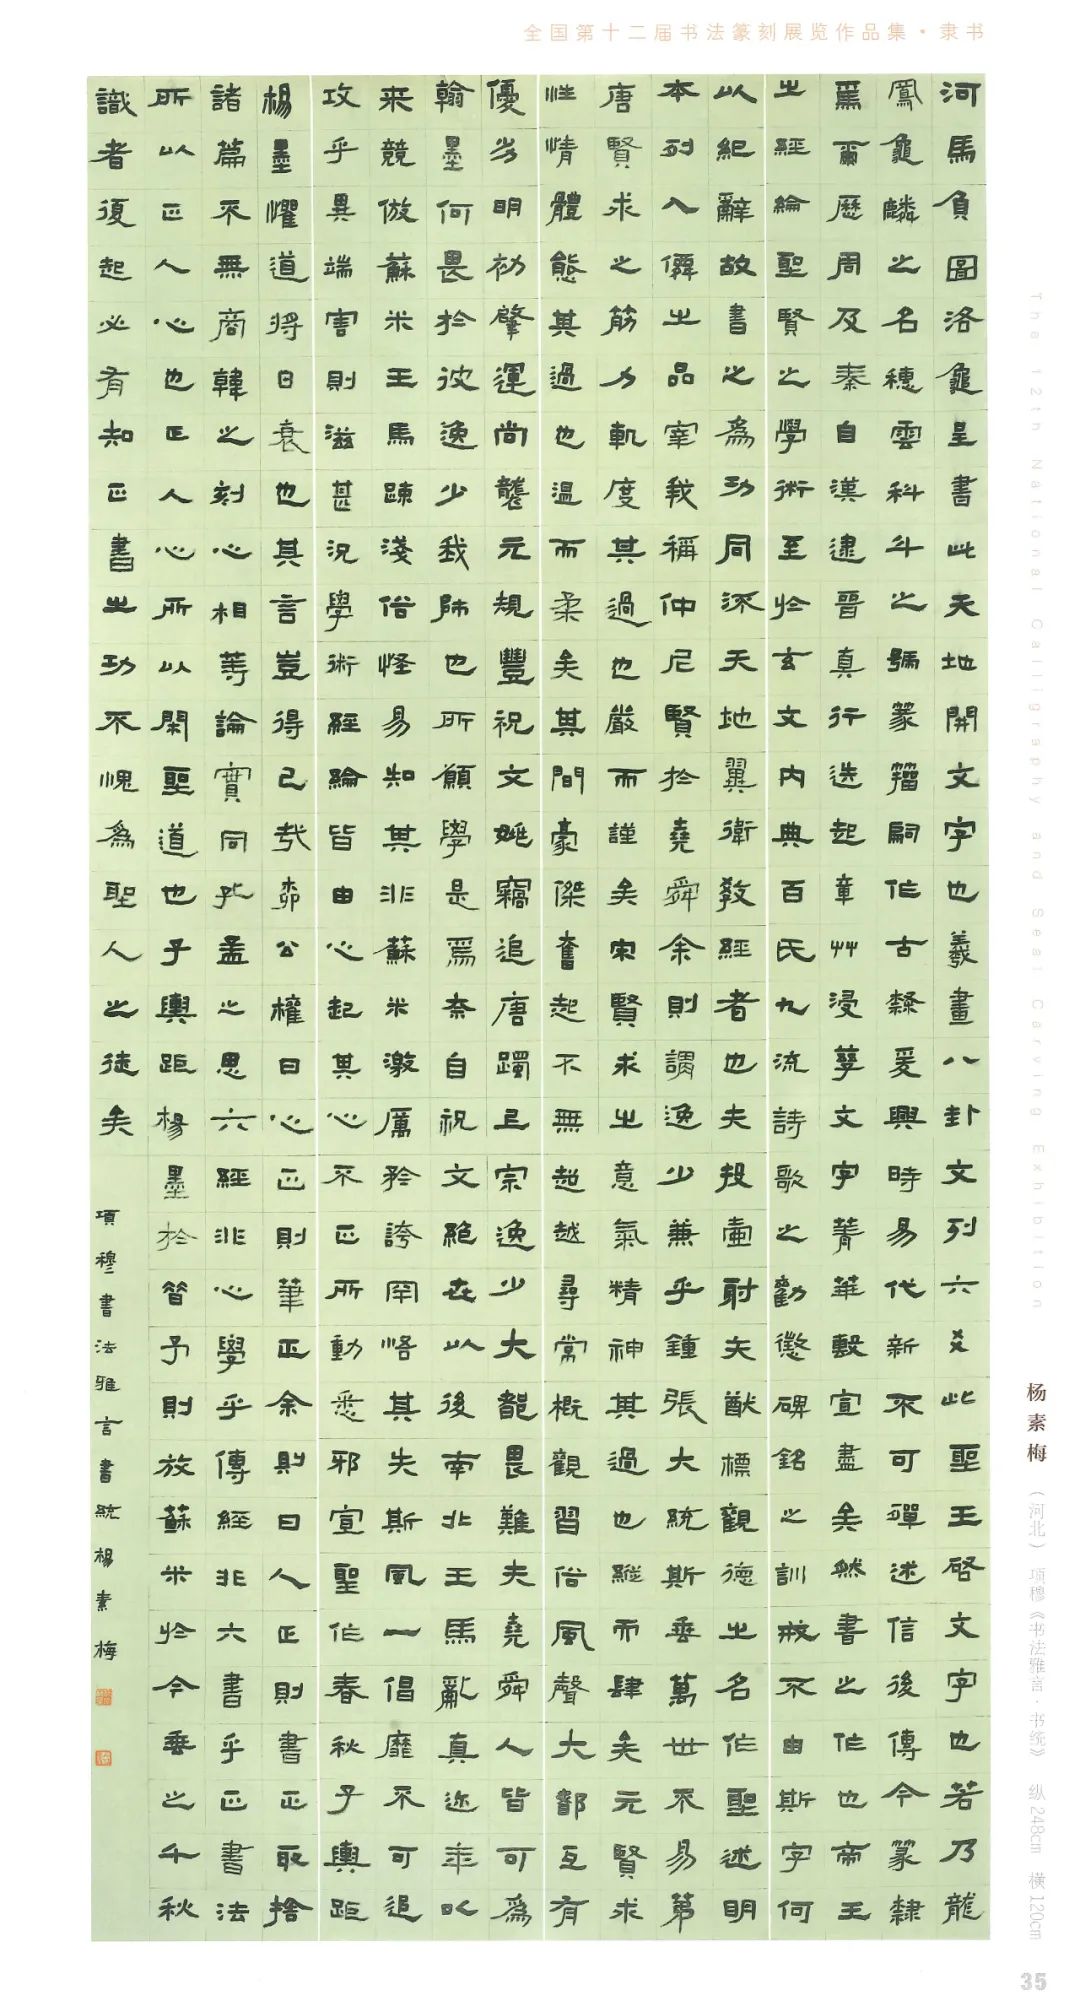 全国第十二届书法篆刻展览作品集·隶书
河馬負圖洛龜呈書此天地開文字也羲畫八卦文列六爻此聖王啓文字也若乃龍
鳳龜麟之名穗雲科斗之號篆籀嗣作古隸爰興時易代新不可殫述信後傳今篆隸
焉爾歷周及秦自漢逮晉真行迭起章艸浸孳文字菁華敷宣盡矣然書之作也帝王
之經綸聖賢之學術至於玄文內典百氏九流詩歌之勸懲碑銘之訓戒不由斯字何
以紀辭故書之為功同流天地翼衛教經者也夫投壺射矢猷標觀德之名作聖述明
本列入儕之品宰我稱仲尼賢於堯舜余則謂逸少兼乎鍾張大統斯垂萬世不易第
唐賢求之筋力軌度其過也嚴而謹矣宋賢求之意氣精神其過也縱而肆矣元賢求
性情體態其過也溫而柔矣其間豪傑奮起不無超越尋常概觀習俗風聲大都互有
優劣明初肇運尚襲元規豐祝文姚竊追唐躅上宗逸少大都畏難夫堯舜人皆可為
翰墨何畏於彼逸少我師也所願學是焉奈自祝文絕世以後南北王馬亂真邇年以
来競倣蘇米王馬疎淺俗怪易知其非蘇米激厲矜誇罕悋其失斯風一倡靡不可追
攻乎異端害則滋甚況學術經綸皆由心起其心不正所動悉邪宣聖作春秋子輿距
楊墨懼道將日衰也其言豈得已哉柳公權曰心正則筆正余則曰人正則書正取捨
諸篇不無商韓之刻心相等論實同孔孟之思六經非心學乎傳經非六書乎正書法
所以正人心也正人心所以閑聖道也子輿距楊墨於昔予則放蘇米於今垂之千秋
識者復起必有知正書之功不愧為聖人之徒矣
項穆書法雅言書統楊素梅
The 12th National Calligraphy and Seal Carving Exhibition
杨素梅（河北） 项穆《书法雅言·书统》 纵248cm 横120cm
35